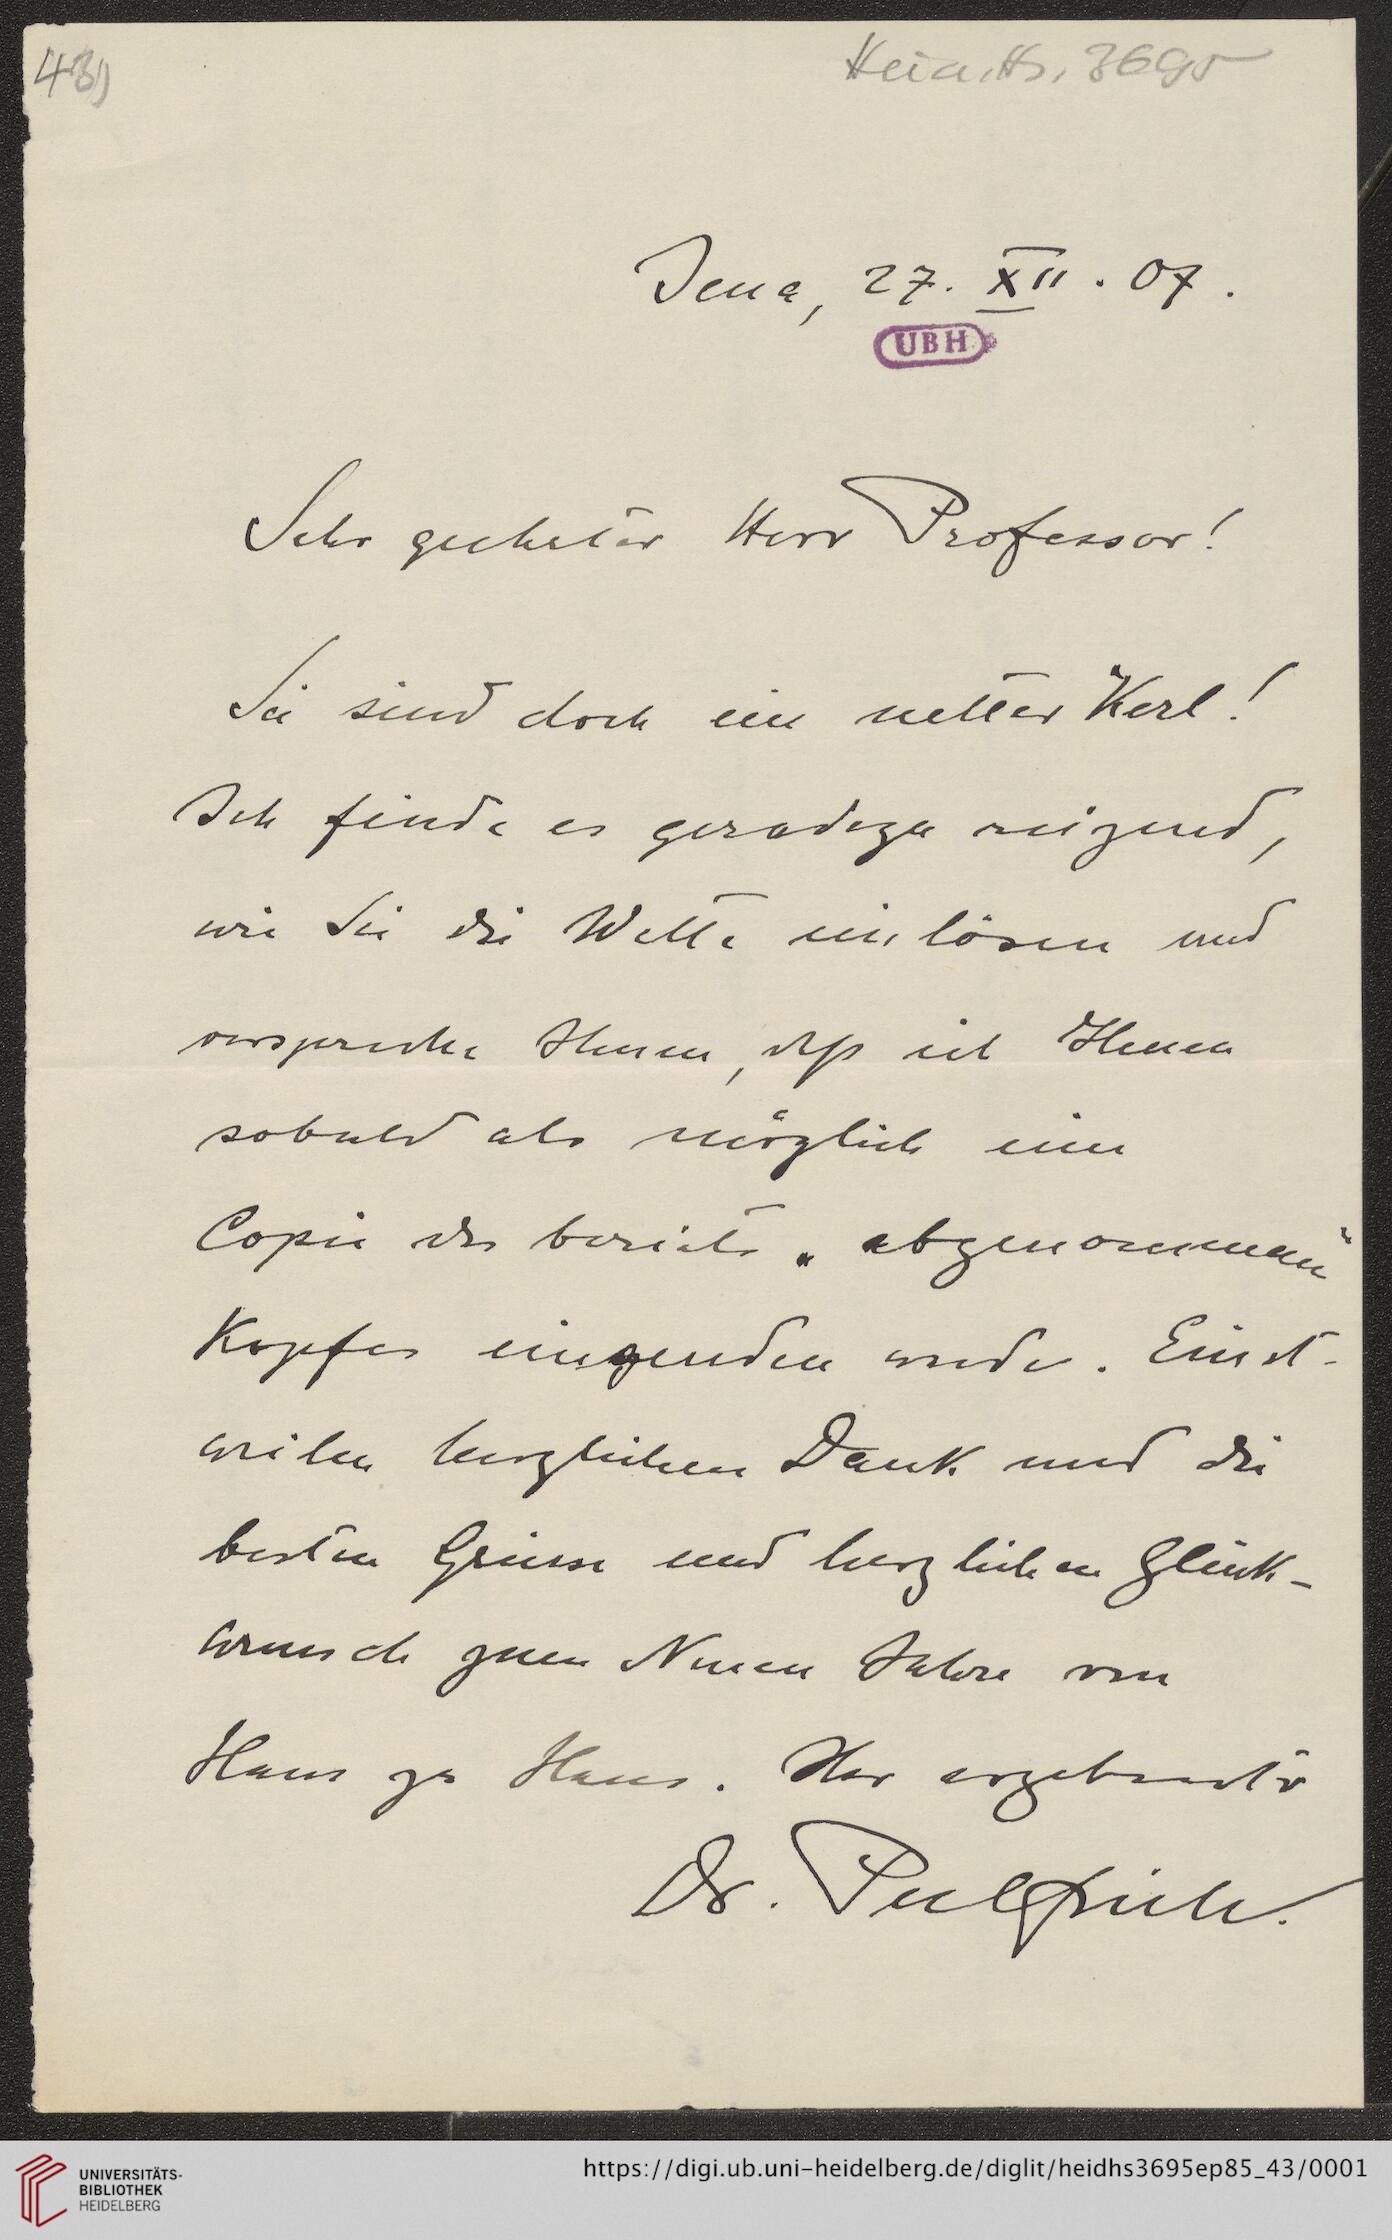 43)
Heid. Hs. 3695
Jena, 27. XII. 07.
UBH
Sehr geehrter Herr Professor!
Sie sind doch ein netter Kerl!
Ich finde es geradezu reizend,
wie Sie die Wette einlösen und
verspreche Ihnen, daß ich Ihnen
sobald als möglich eine
Copie des bereits „abgenommenen“
Kopfes einsenden werde. Einst-
weilen herzlichen Dank und die
besten Grüsse und herzlichen Glück-
wunsch zum Neuen Jahre von
Haus zu Haus. Ihr ergebenster
Dr. Pulfrich.
UNIVERSITÄTS-
BIBLIOTHEK
HEIDELBERG
https://digi.ub.uni-heidelberg.de/diglit/heidhs3695ep85_43/0001